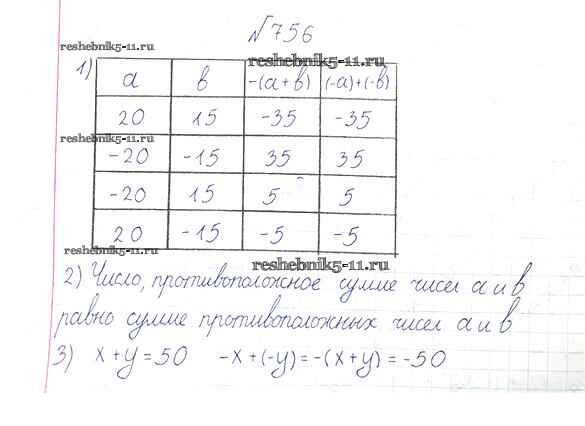 №756
reshebnik5-11.ru
1)
a в -(a+в) (-a)+(-в)
20 15 -35 -35
reshebnik5-11.ru
-20 -15 35 35
-20 15 5 5
20 -15 -5 -5
reshebnik5-11.ru
reshebnik5-11.ru
2) Число, противоположное сумме чисел a и в
равно сумме противоположных чисел a и в
3) x+y=50 -x+(-y)=-(x+y)=-50